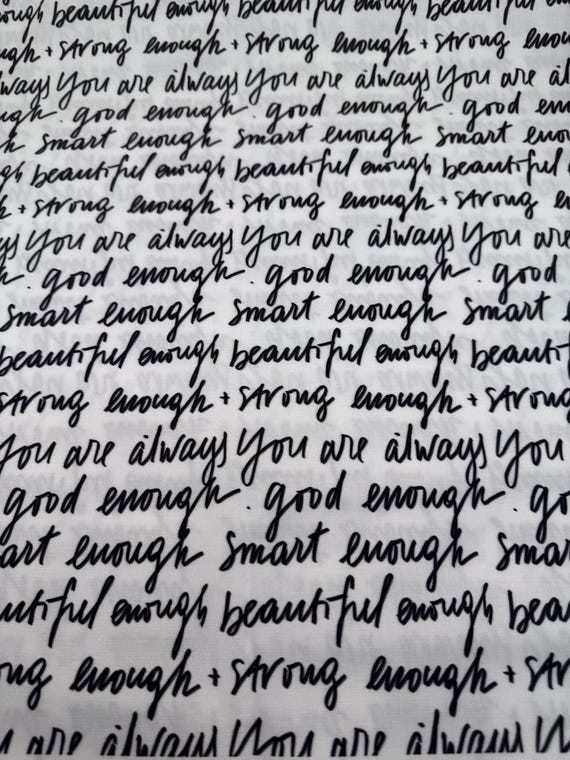 ough beautiful enough beautiful enough beautiful enough
ugh + strong enough + strong enough + strong enou
ways You are always You are always You are al
ugh . good enough . good enough . good en
h smart enough smart enough smart enou
gh beautiful enough beautiful enough beautiful
h + strong enough + strong enough + strong e
ys You are always You are always You are
h . good enough . good enough . good
smart enough smart enough smart e
beautiful enough beautiful enough beautif
strong enough + strong enough + strong
You are always You are always You
good enough . good enough . go
art enough smart enough smar
utiful enough beautiful enough beau
ong enough + strong enough + str
u are always You are always Y